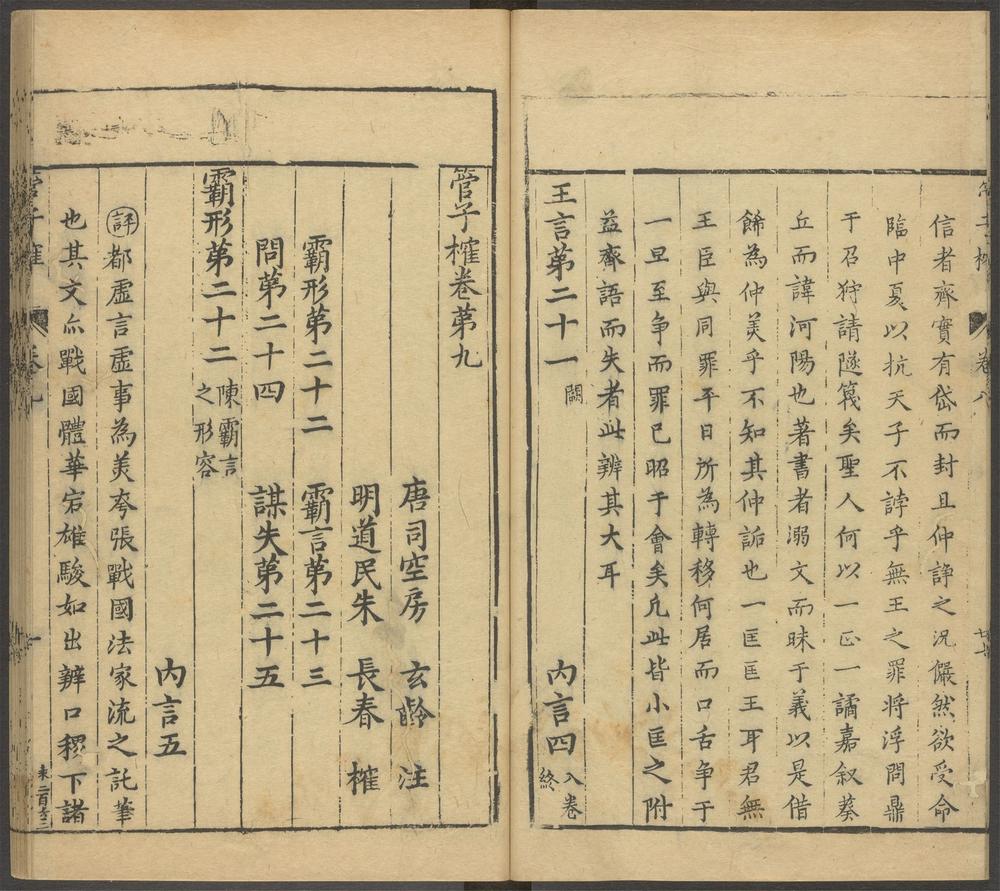 信者齊實有岱而封且仲諍之況儼然欲受命
臨中夏以抗天子不誖乎無王之罪將浮問鼎
于召狩請隧篾矣聖人何以一正一譎嘉叙葵
丘而諱河陽也著書者溺文而昧于義以是借
餙為仲美乎不知其仲詬也一匡匡王耳君無
王臣與同罪平日所為轉移何居而口舌争于
一旦至争而罪已昭于會矣凢此皆小匡之附
益齊語而失者此辨其大耳
王言第二十一 闕 內言四 八卷終
管子榷卷第九
唐司空房 玄齡 注
明道民朱 長春 榷
霸形第二十二 霸言第二十三
問第二十四 謀失第二十五
霸形第二十二 陳霸言之形容
內言五
評 都虛言虛事為美夸張戰國法家流之託筆
也其文亦戰國體華宕雄駿如出辨口稷下諸
管子榷 卷九 一